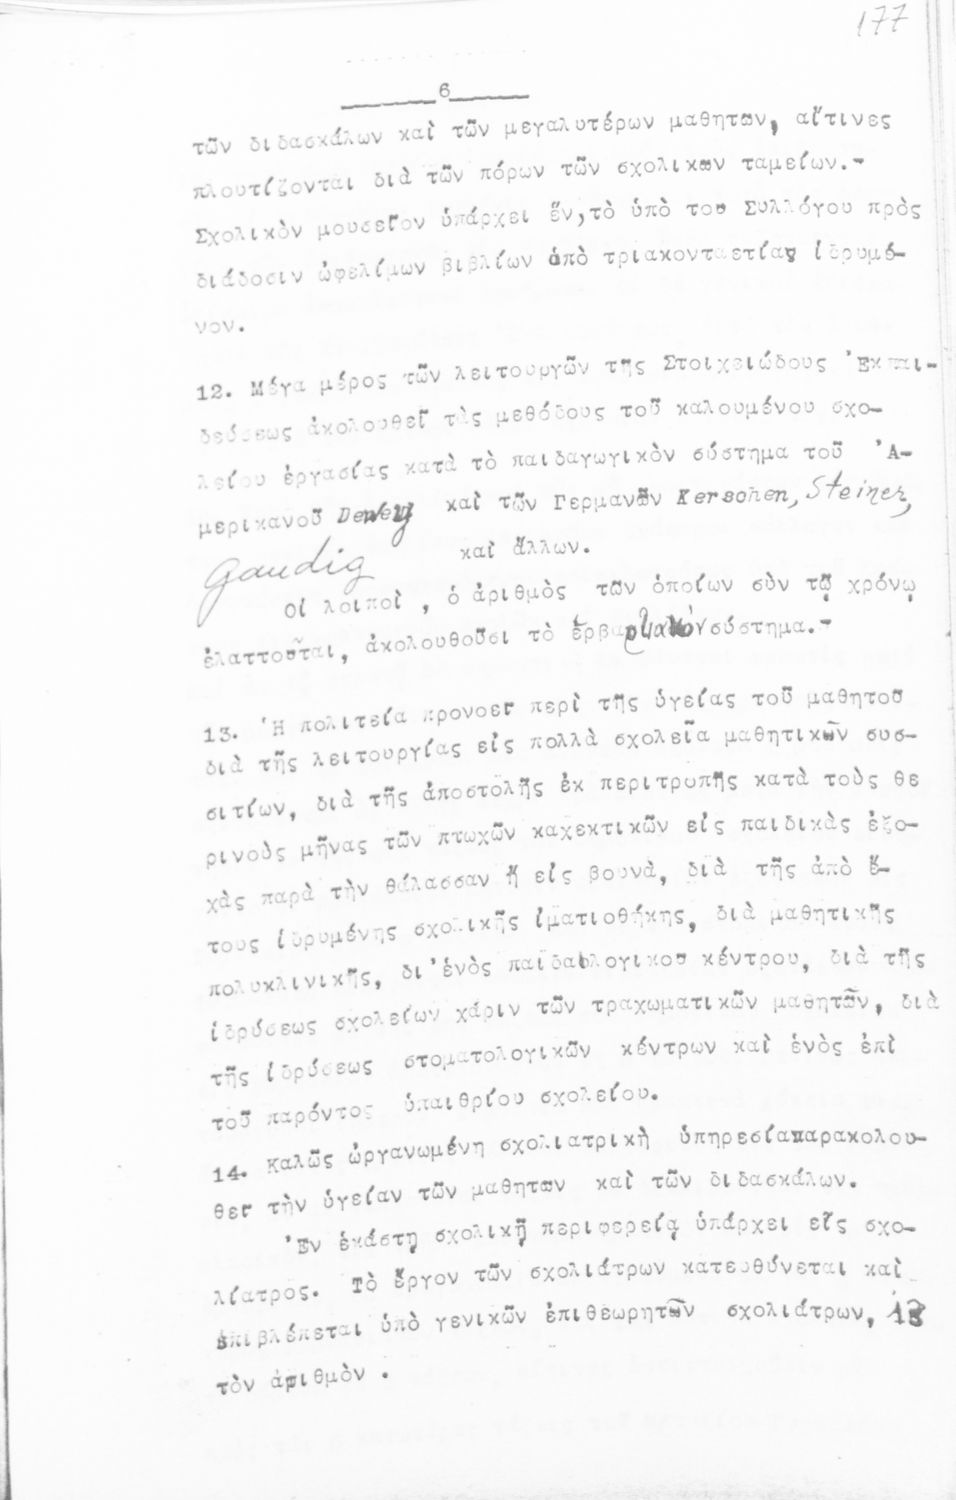 177
6
τῶν διδασκάλων καὶ τῶν μεγαλυτέρων μαθητων, αἵτινες
πλουτίζονται διὰ τῶν πόρων τῶν σχολικων ταμείων.-
Σχολικὸν μουσεῖον ὑπάρχει ἕν,τὸ ὑπὸ του Συλλόγου πρὸς
διάδοσιν ὠφελίμων βιβλίων ἀπὸ τριακονταετίας ἱδρυμέ-
νον.
12. Μέγα μέρος τῶν λειτουργῶν τῆς Στοιχειώδους Ἐκπαι-
δεύσεως ἀκολουθεῖ τὰς μεθόδους τοῦ καλουμένου σχο-
λείου ἐργασίας κατὰ τὸ παιδαγωγικὸν σύστημα τοῦ Ἀ-
μερικανοῦ Dewey καὶ τῶν Γερμανῶν Kerschen, Steiner,
Gaudig καὶ ἄλλων.
Οἱ λοιποὶ , ὁ ἀριθμὸς τῶν ὁποίων σὺν τῷ χρόνῳ
ἐλαττοῦται, ἀκολουθοῦσι τὸ ἑρβαρτιανὸν σύστημα.-
13. Ἡ πολιτεία προνοεῖ περὶ τῆς ὑγείας τοῦ μαθητοῦ
διὰ τῆς λειτουργίας εἰς πολλὰ σχολεῖα μαθητικῶν συσ-
σιτίων, διὰ τῆς ἀποστολῆς ἐκ περιτροπῆς κατὰ τοὺς θε
ρινοὺς μῆνας τῶν πτωχῶν καχεκτικῶν εἰς παιδικὰς ἐξο-
χὰς παρὰ τὴν θάλασσαν ἤ εἰς βουνὰ, διὰ τῆς ἀπὸ ἔ-
τους ἱδρυμένης σχολικῆς ἱματιοθήκης, διὰ μαθητικῆς
πολυκλινικῆς, δι'ἑνὸς παιδολογικου κέντρου, διὰ τῆς
ἱδρύσεως σχολείων χάριν τῶν τραχωματικῶν μαθητῶν, διὰ
τῆς ἱδρύσεως στοματολογικῶν κέντρων καὶ ἑνὸς ἐπὶ
τοῦ παρόντος ὑπαιθρίου σχολείου.
14. Καλῶς ὠργανωμένη σχολιατρικὴ ὑπηρεσίαπαρακολου-
θεῖ τὴν ὑγείαν τῶν μαθητων καὶ τῶν διδασκάλων.
Ἐν ἑκάστῃ σχολικῇ περιφερείᾳ ὑπάρχει εἷς σχο-
λίατρος. Τὸ ἔργον τῶν σχολιάτρων κατευθύνεται καὶ
ἐπιβλέπεται ὑπὸ γενικῶν ἐπιθεωρητῶν σχολιάτρων,
τὸν ἀριθμὸν .